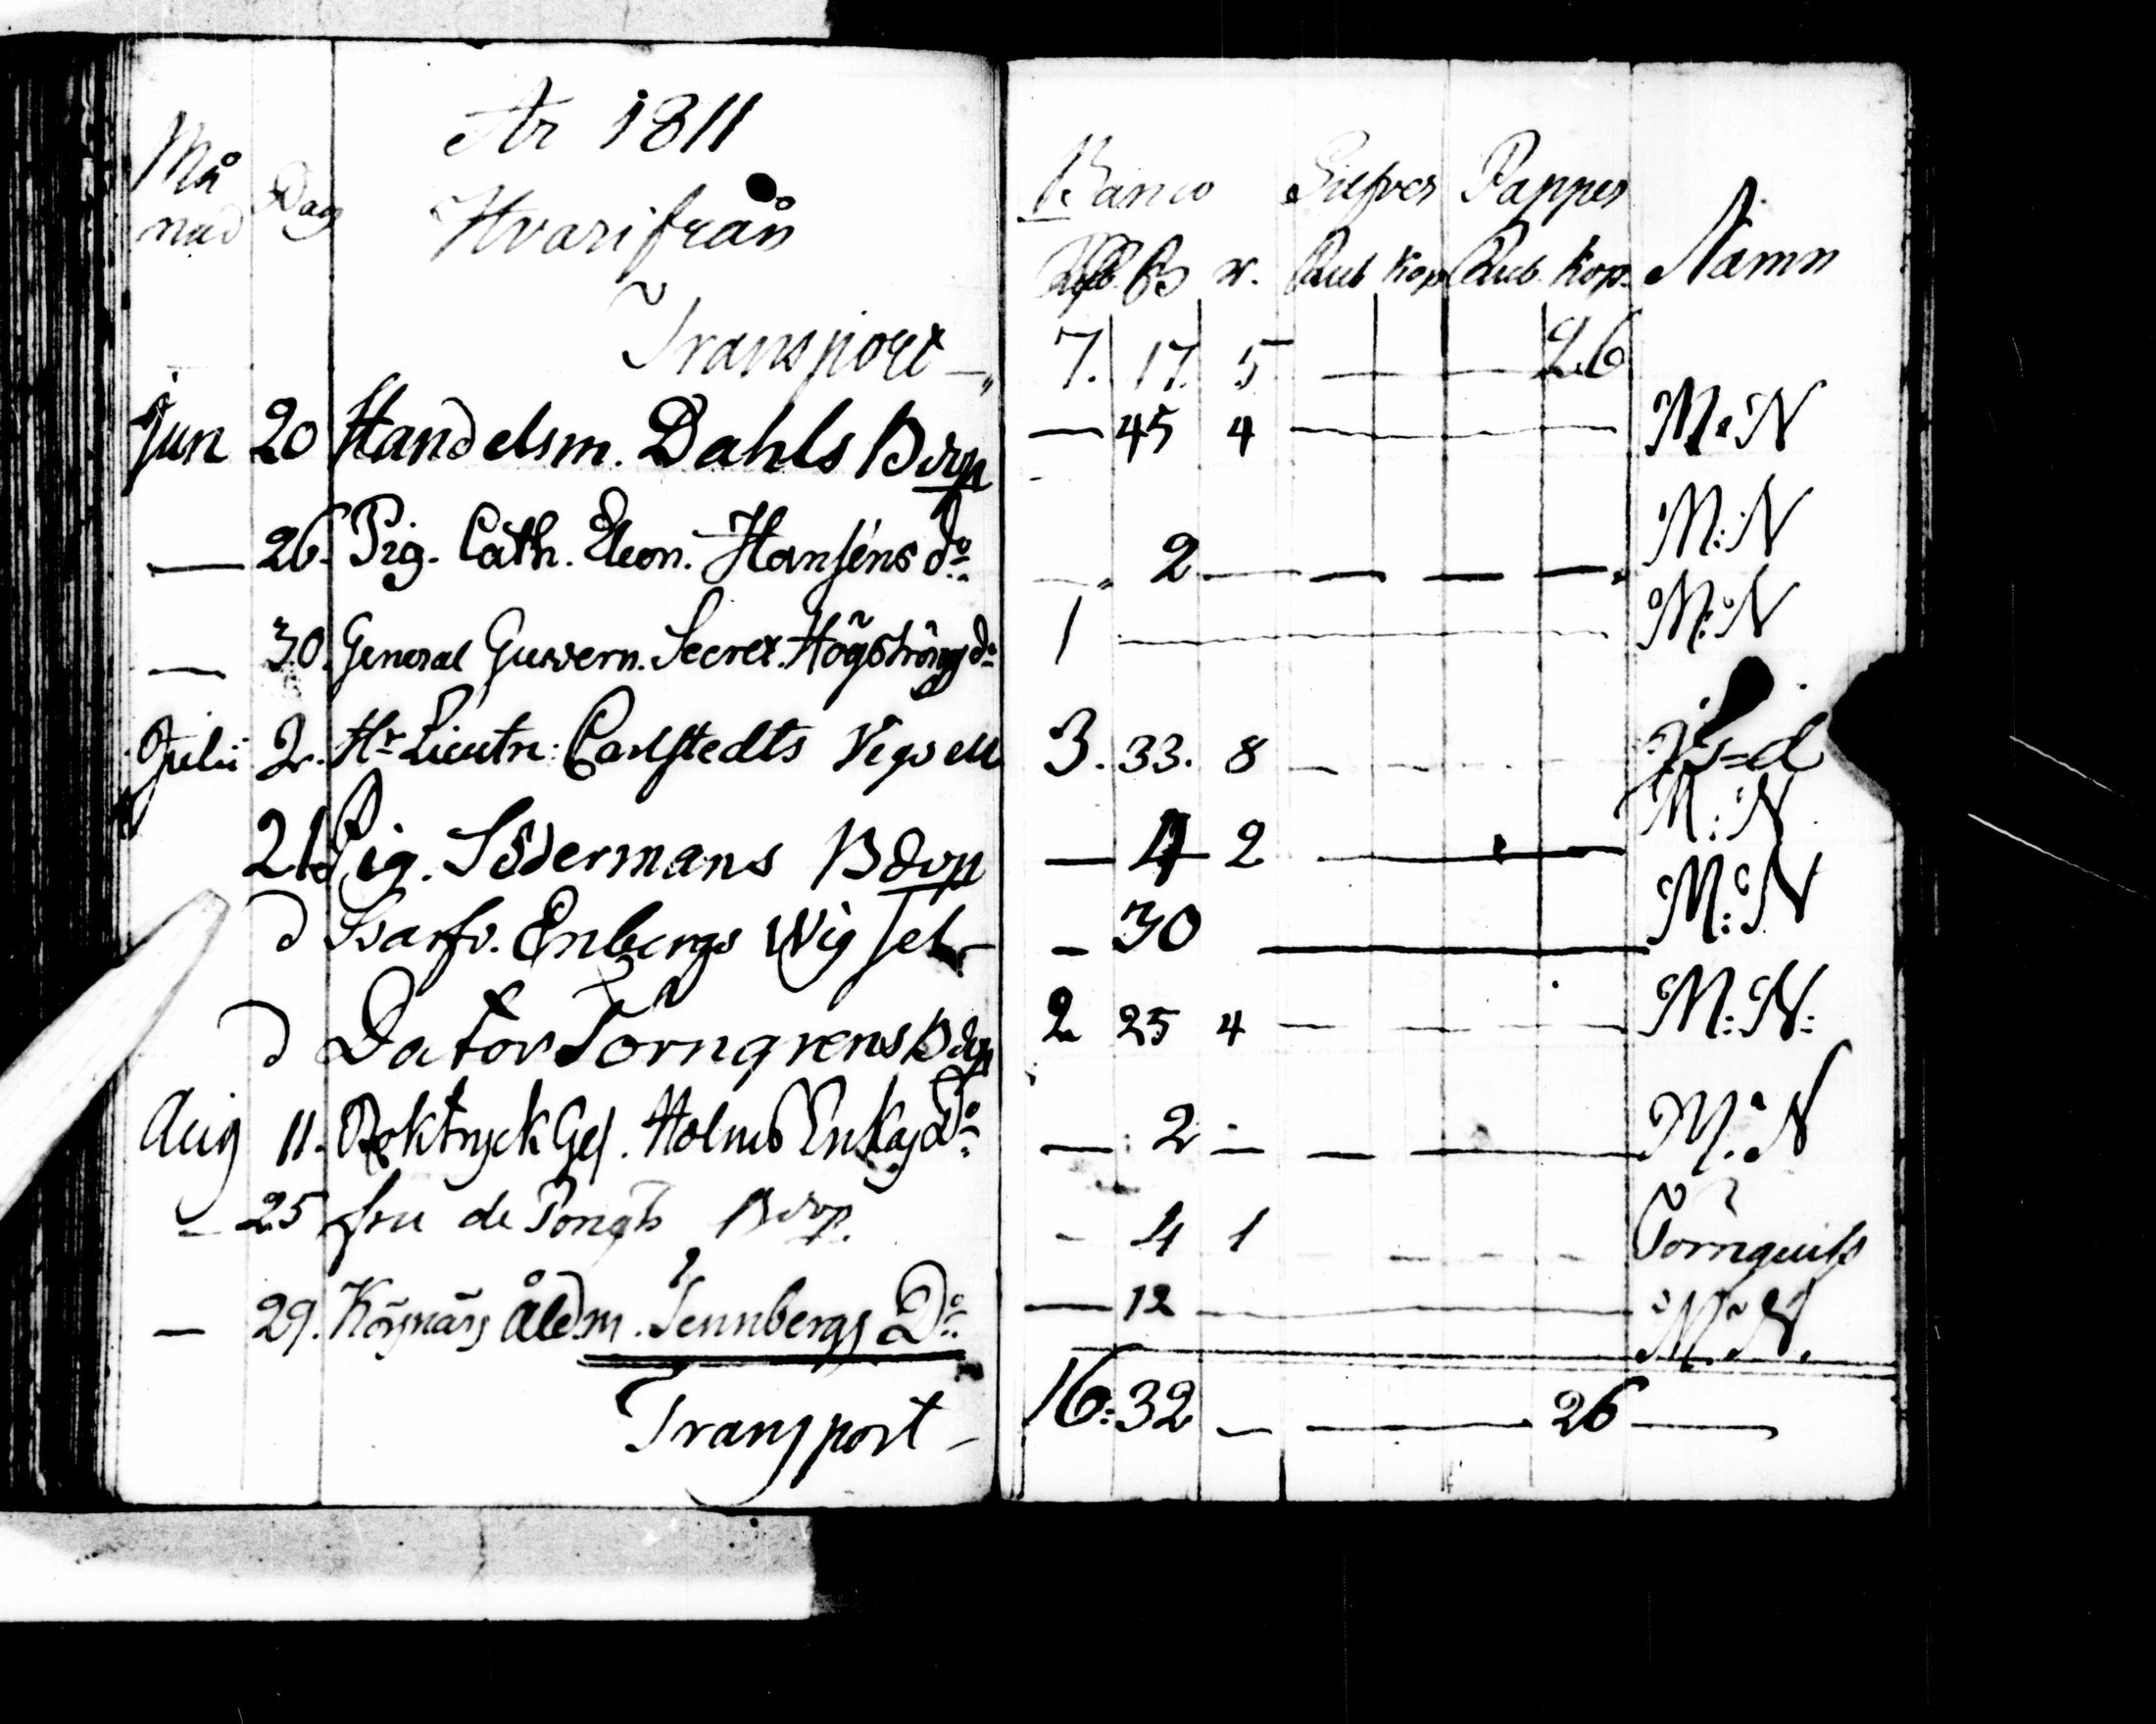 År 1811
Månad Dag Hvarifrån Banco Silfver Papper Namn
Rub Kop Rub. Kop.
Transport 7. 17. 5 26
Jun 20 Handelsm. Dahls Bdop — 45 4 M:N
— 26. Pig. Cath. Eleon. Hanséns do — 2 M:N
— 30. General Guvern. Secret. Högströms do 1 M:N
Julii 2. Hr Lieutn: Carlstedts Vigsell 3. 33. 8
21. Pig. Södermans Bdop — 4 2 M:N
d Garfv. Enbergs Wigsel — 30 M:N
d Törngrens Bdop 2 25 4 M:N:
Aug 11. Boktryck Ges. Holms Enkas Do — 2 — M:N
— 25 fru de Ponts Bdop. - 4 1 Törnquist
— 29. Körsnärs Åldm. Tennbergs Do — 12 M:N.
Transport — 16: 32 — 26